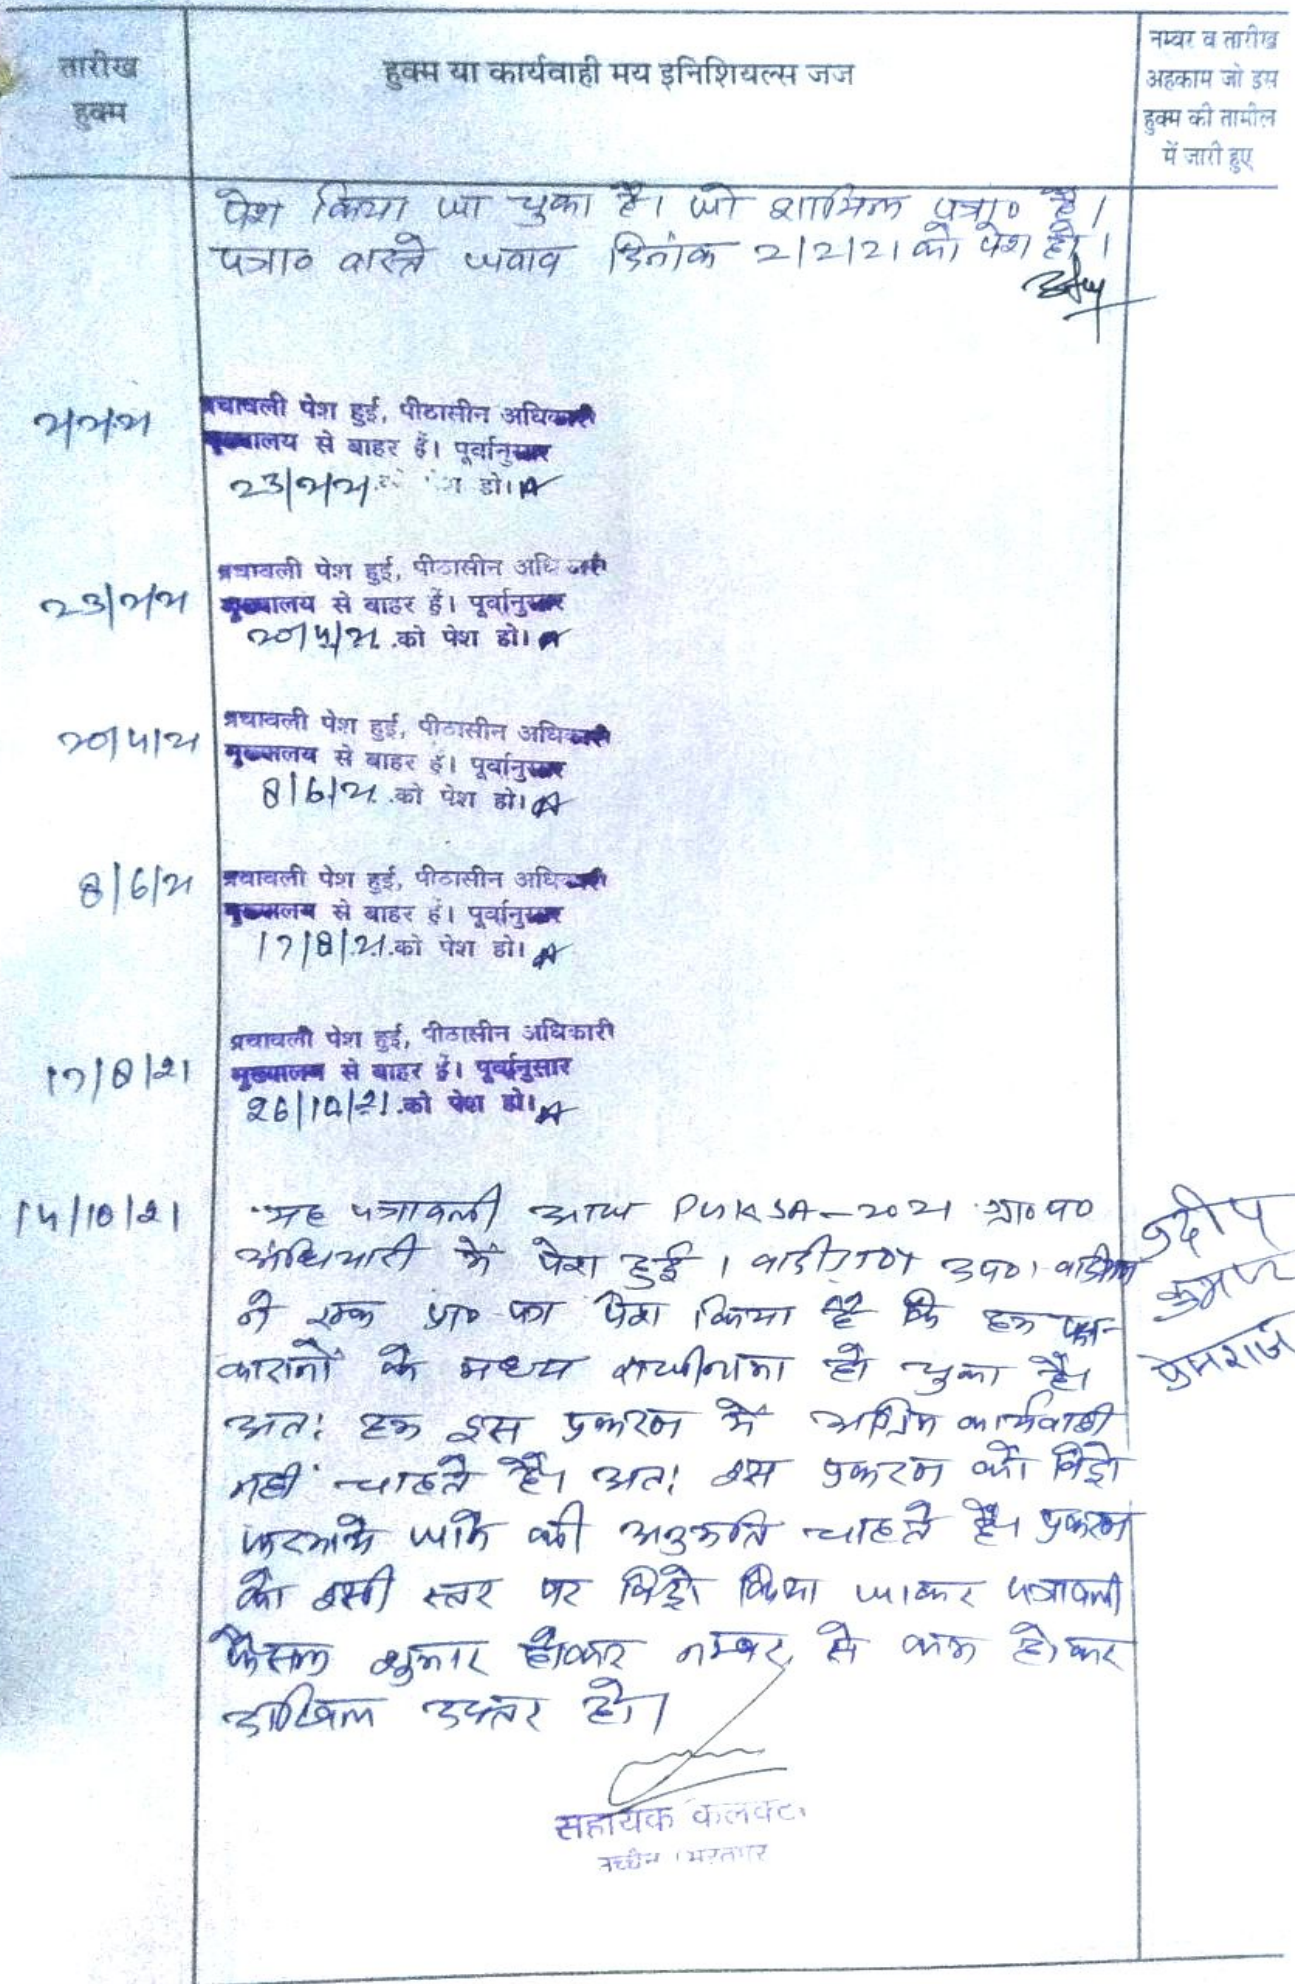 तारीख
हुक्म
हुक्म या कार्यवाही मय इनिशियल्स जज
नम्बर व तारीख
अहकाम जो इस
हुक्म की तामील
में जारी हुए
पेश किया जा चुका है। जो शामिल पत्रा० है।
पत्रा० वास्ते जवाब दिनांक 2/2/21 को पेश हो।
2/2/21
पत्रावली पेश हुई, पीठासीन अधिकारी
मुख्यालय से बाहर हैं। पूर्वानुसार
23/2/21 को पेश हो।
23/2/21
पत्रावली पेश हुई, पीठासीन अधिकारी
मुख्यालय से बाहर हैं। पूर्वानुसार
20/4/21 को पेश हो।
20/4/21
पत्रावली पेश हुई, पीठासीन अधिकारी
मुख्यालय से बाहर हैं। पूर्वानुसार
8/6/21 को पेश हो।
8/6/21
पत्रावली पेश हुई, पीठासीन अधिकारी
मुख्यालय से बाहर हैं। पूर्वानुसार
17/8/21 को पेश हो।
17/8/21
पत्रावली पेश हुई, पीठासीन अधिकारी
मुख्यालय से बाहर हैं। पूर्वानुसार
26/10/21 को पेश हो।
14/10/21
यह पत्रावली आज PGKSA-2021 ग्रा० प०
में पेश हुई। वादीगण उप०। वादीगण
ने एक प्रा० पत्र पेश किया है कि हम पक्ष-
कारानों के मध्य राजीनामा हो चुका है।
अतः हम इस प्रकरण में अग्रिम कार्यवाही
नहीं चाहते हैं। अतः इस प्रकरण को विड्रो
फरमाये जाने की अनुमति चाहते हैं। प्रकरण
को इसी स्तर पर विड्रो किया जाकर पत्रावली
फैसल शुमार होकर नम्बर से कम होकर
दाखिल दफ्तर हो।
प्रदीप
कुमार
प्रेमराज
सहायक कलक्टर
उच्चैन (भरतपुर